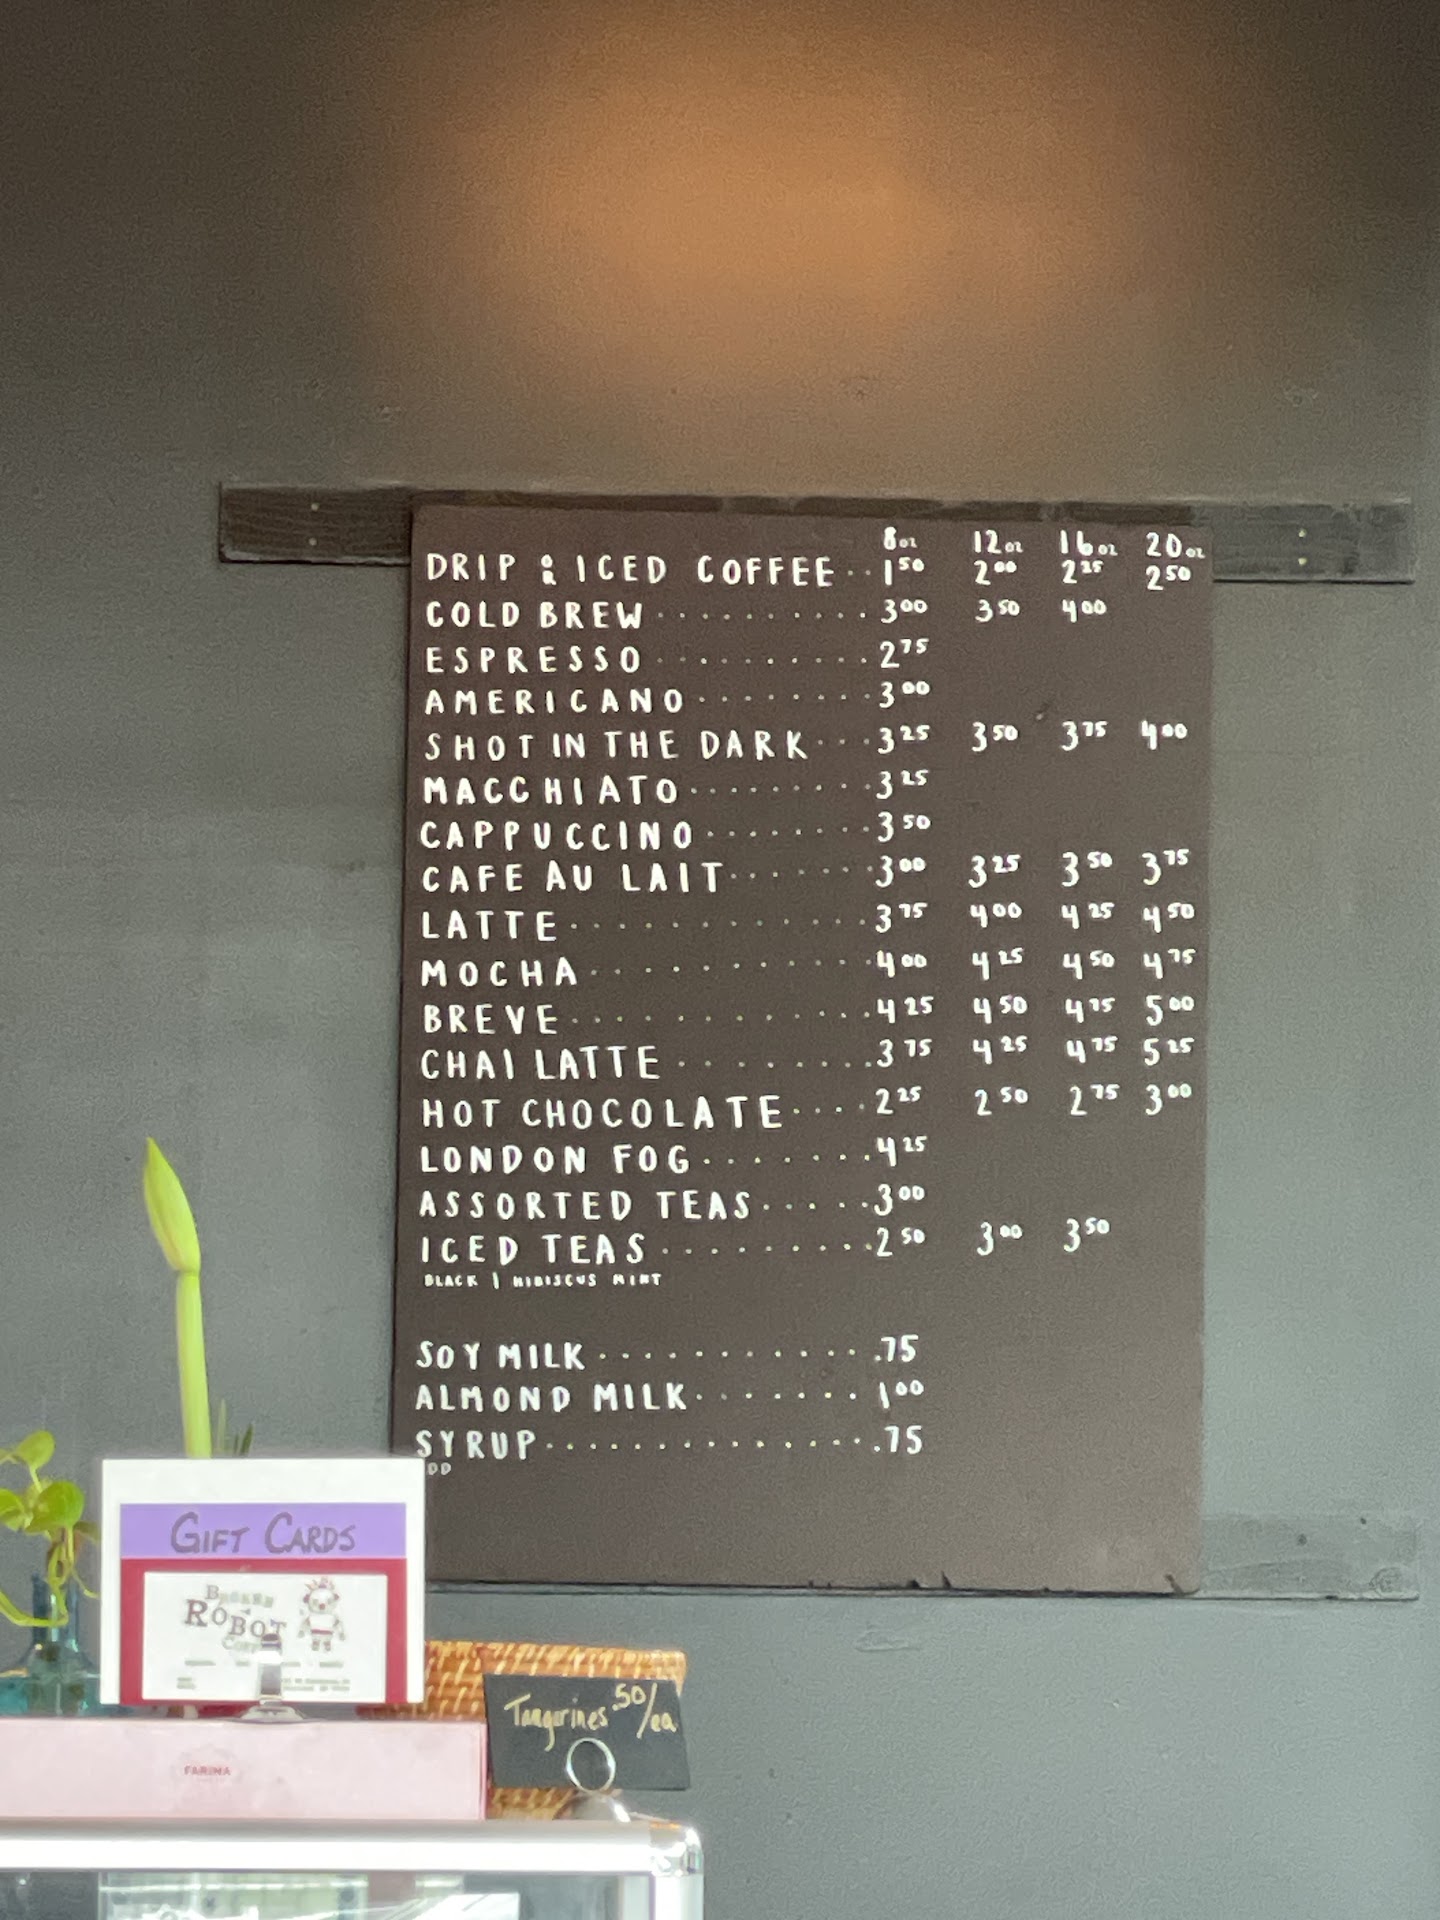 8oz 12oz 16oz 20oz
DRIP OR ICED COFFEE 1.50 2.00 2.25 2.50
COLD BREW 3.00 3.50 4.00
ESPRESSO 2.75
AMERICANO 3.00
SHOT IN THE DARK 3.25 3.50 3.75 4.00
MACCHIATO 3.25
CAPPUCCINO 3.50
CAFE AU LAIT 3.00 3.25 3.50 3.75
LATTE 3.75 4.00 4.25 4.50
MOCHA 4.00 4.25 4.50 4.75
BREVE 4.25 4.50 4.75 5.00
CHAI LATTE 3.75 4.25 4.75 5.25
HOT CHOCOLATE 2.25 2.50 2.75 3.00
LONDON FOG 4.25
ASSORTED TEAS 3.00
ICED TEAS 2.50 3.00 3.50
BLACK | HIBISCUS MINT
SOY MILK .75
ALMOND MILK 1.00
SYRUP .75
GIFT CARDS
BROKEN
ROBOT
Tangerines .50/ea
FARINA